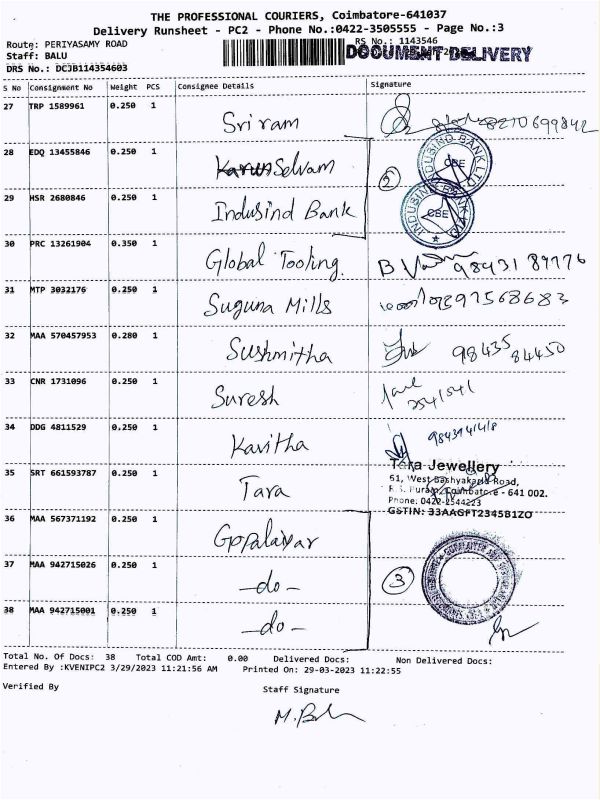 THE PROFESSIONAL COURIERS, Coimbatore-641037
Delivery Runsheet - PC2 - Phone No.:0422-3505555 - Page No.:3
Route: PERIYASAMY ROAD
RS No.: 1143546
Staff: BALU
DOCUMENT DELIVERY
DRS No.: DCJB114354603
S No Consignment No Weight PCS Consignee Details Signature
27 TRP 1589961 0.250 1 Sriram 8270699842
28 EDQ 13455846 0.250 1 Selvam
INDUSIND BANK LTD CBE
29 HSR 2680846 0.250 1 Indusind Bank 2
INDUSIND BANK LTD CBE
30 PRC 13261904 0.350 1 Global Tooling. 98431 89776
31 MTP 3032176 0.250 1 Suguna Mills 897568683
32 MAA 570457953 0.280 1 Sushmitha 98435 84450
33 CNR 1731096 0.250 1 Suresh 2541541
34 DDG 4811529 0.250 1 Kavitha
35 SRT 661593787 0.250 1 Tara
Tara Jewellery
61, West Bashyakaralu Road,
R.S. Puram, Coimbatore - 641 002.
Phone: 0422-2544223
GSTIN: 33AAGFT2345B1ZO
36 MAA 567371192 0.250 1 Gopalaiyar
37 MAA 942715026 0.250 1 -do- 3
38 MAA 942715001 0.250 1 -do-
Total No. Of Docs: 38 Total COD Amt: 0.00 Delivered Docs: Non Delivered Docs:
Entered By :KVENIPC2 3/29/2023 11:21:56 AM Printed On: 29-03-2023 11:22:55
Verified By Staff Signature